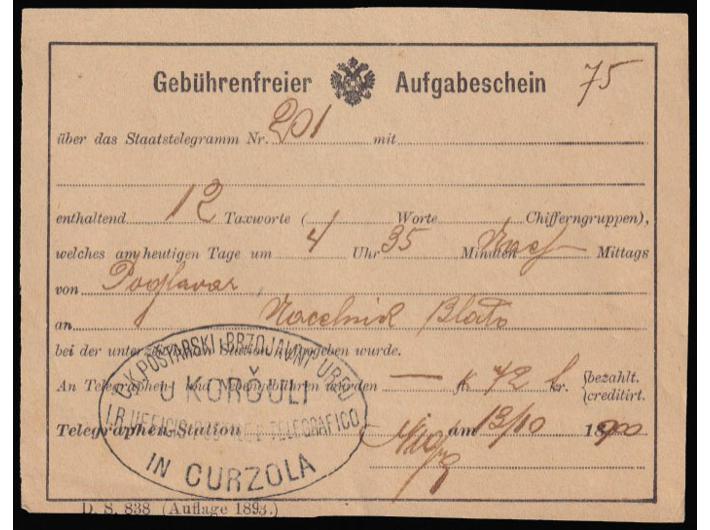 Gebührenfreier Aufgabeschein 75
über das Staatstelegramm Nr. 201 mit
enthaltend 12 Taxworte ( Worte Chifferngruppen),
welches am heutigen Tage um 4 Uhr 35 Minuten Nach Mittags
von Poglavar
an Nacelnik Blato
bei der unterzeichneten Station aufgegeben wurde.
An Telegraphen- und Nebengebühren wurden — K 72 h kr. {bezahlt. creditirt.
Telegraphen-Station am 13/10 1900
C.K. POŠTARSKI I BRZOJAVNI URED
U KORČULI
I.R. UFFICIO TELEGRAFICO
IN CURZOLA
D. S. 838 (Auflage 1893.)